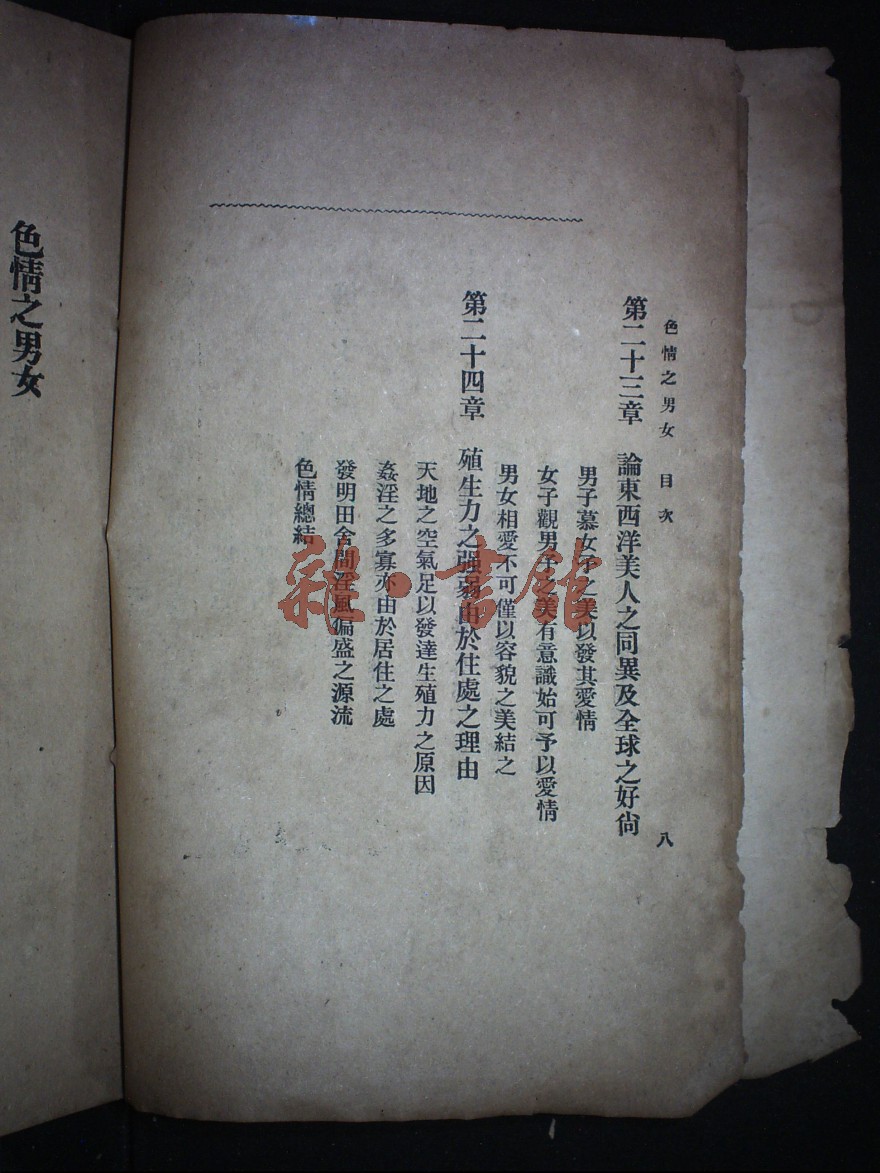 色情之男女 目次 八
第二十三章 論東西洋美人之同異及全球之好尙
男子慕女子之美以發其愛情
女子觀男子之美有意識始可予以愛情
男女相愛不可僅以容貌之美結之
第二十四章 殖生力之强弱由於住處之理由
天地之空氣足以發達生殖力之原因
姦淫之多寡亦由於居住之處
發明田舍間淫風偏盛之源流
色情總結
色情之男女
雜·書館